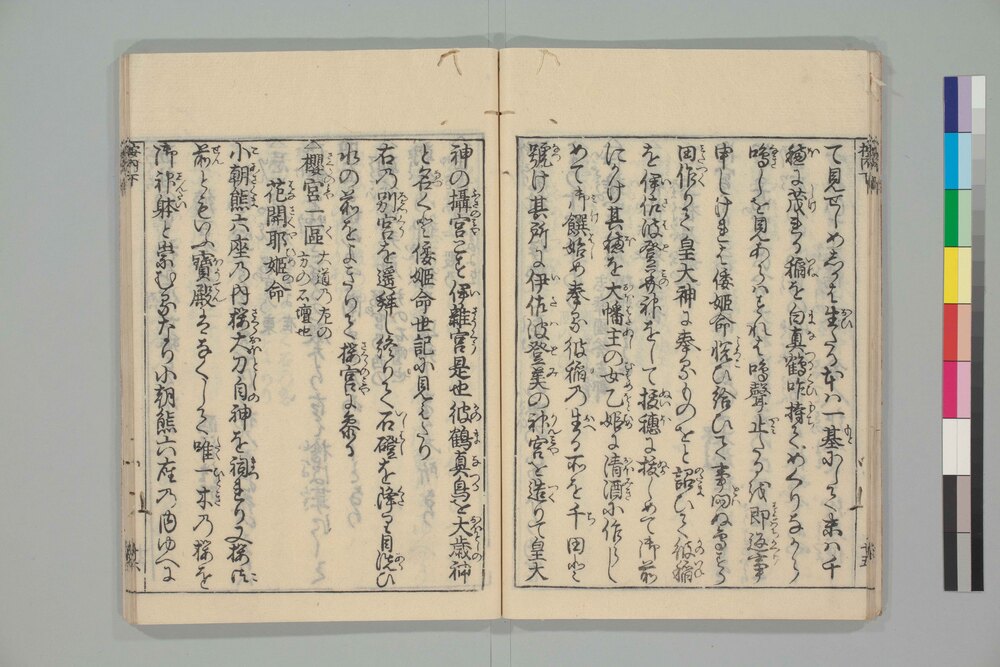 て見せしめしかば生たる本ハ一基にして末ハ千
穂に茂れる稲を白真鶴咋持めぐりながら
鳴しを見あらはすれば鳴聲止りぬ即返事
申しけれは倭姫命悦ひ給ひて事問ぬ鳥すら
田作りて皇大神に奉るものをと詔ひて彼稲
を伊佐波登美神をして抜穂に抜しめて御前
にかけ其穂を大幡主の女乙姫に清酒に作らし
めて御饌始め奉る彼稲の生る所を千田と
號け其所に伊佐波登美の神宮を造りて皇大
神の攝宮とす伊雜宮是也彼鶴真鳥を大歳神
と名く と倭姫命世記に見えたり
右乃別宮を遥拜し終りて石磴を降り
水の前をよぎりて櫻宮に参る
櫻宮一區 大道乃左の
方の石壇也
花開耶姫命
小朝熊六座乃内櫻大刀自神を祠れり又櫻
前ともいふ寳殿はなくして唯一木乃櫻を
御神躰と崇むるなり小朝熊六座乃内ゆへに